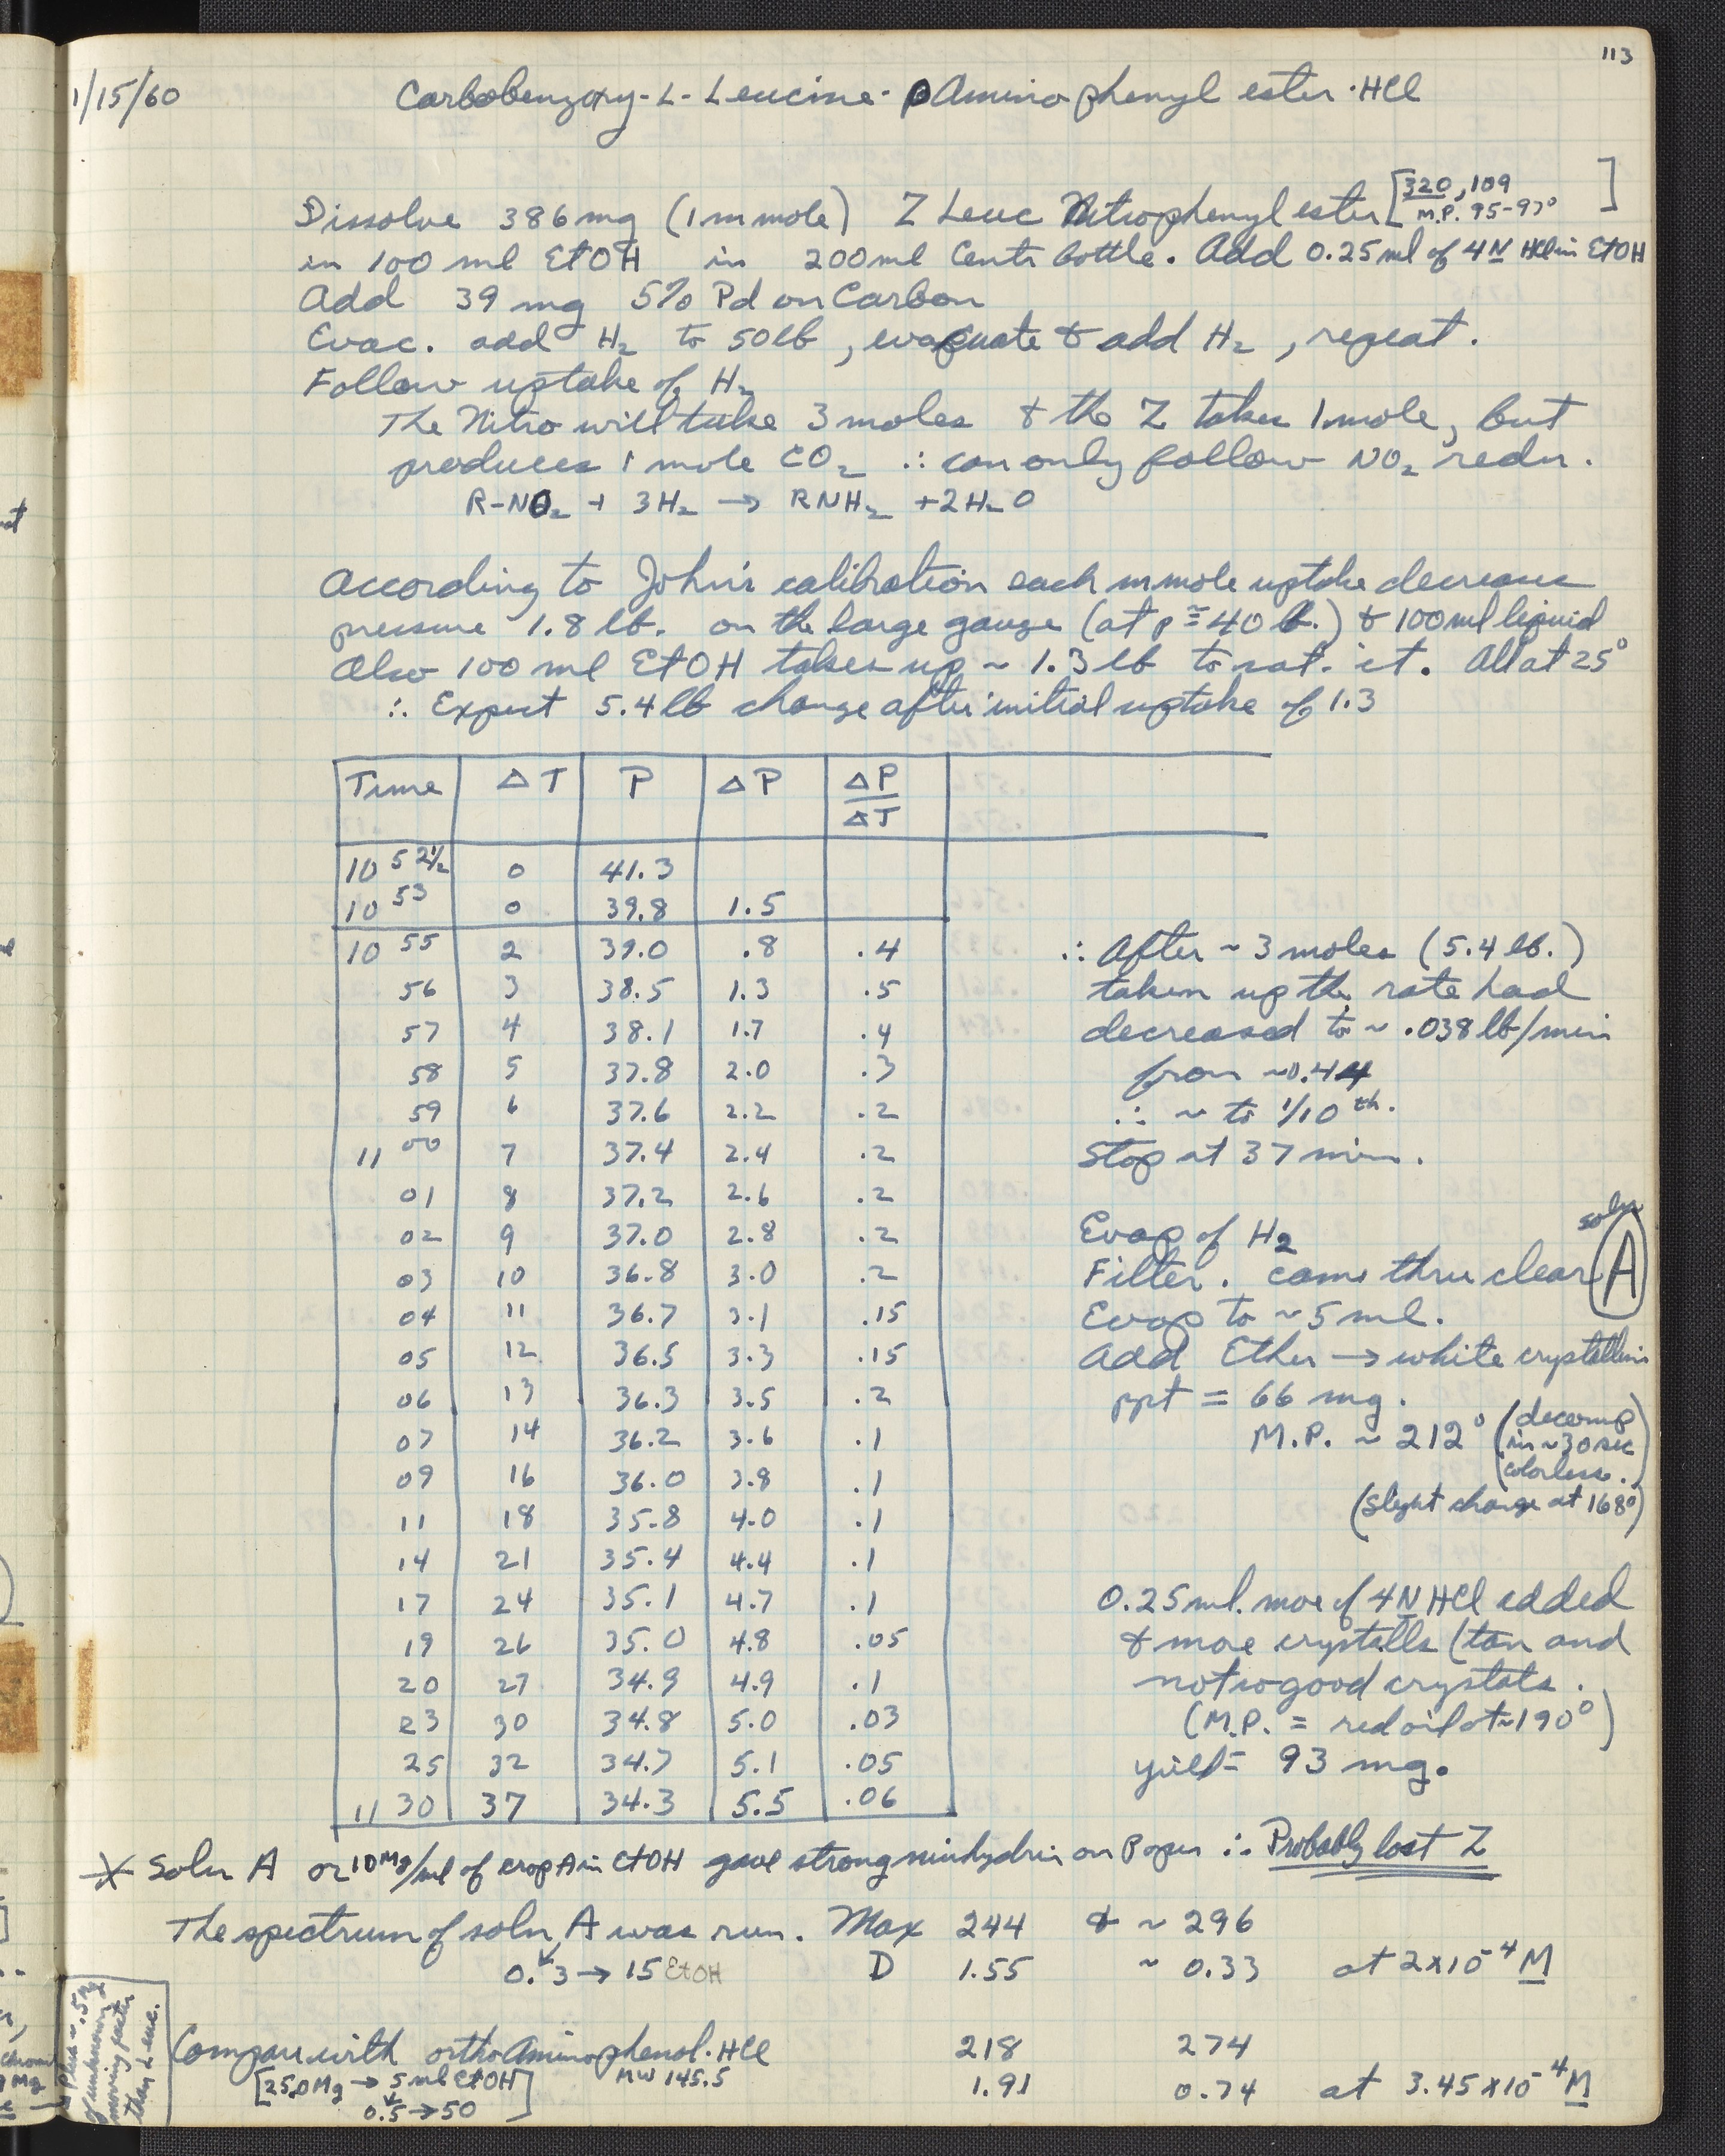 113
1/15/60 Carbobenzoxy-L-Leucine-pAminophenyl ester·HCl
Dissolve 386 mg (1 m mole) Z Leuc Nitrophenyl ester [320, 109 M.P. 95-97°]
in 100 ml EtOH in 200 ml Centr bottle. Add 0.25 ml of 4N HCl in EtOH
Add 39 mg 5% Pd on Carbon
Evac. add H2 to 50 lb, evacuate & add H2, repeat.
Follow uptake of H2
The Nitro will take 3 moles & the Z takes 1 mole, but
produces 1 mole CO2 ∴ can only follow NO2 redn.
R-NO2 + 3H2 → RNH2 + 2H2O
According to John's calibration each m mole uptake decreases
pressure 1.8 lb. on the large gauge (at p ≅ 40 lb.) & 100 ml liquid
Also 100 ml EtOH takes up ~ 1.3 lb to sat. it. All at 25°
∴ Expect 5.4 lb change after initial uptake of 1.3
Time ΔT P ΔP ΔP/ΔT
10 52½ 0 41.3
10 53 0 39.8 1.5
10 55 2 39.0 .8 .4
56 3 38.5 1.3 .5
57 4 38.1 1.7 .4
58 5 37.8 2.0 .3
59 6 37.6 2.2 .2
11 00 7 37.4 2.4 .2
01 8 37.2 2.6 .2
02 9 37.0 2.8 .2
03 10 36.8 3.0 .2
04 11 36.7 3.1 .15
05 12 36.5 3.3 .15
06 13 36.3 3.5 .2
07 14 36.2 3.6 .1
09 16 36.0 3.8 .1
11 18 35.8 4.0 .1
14 21 35.4 4.4 .1
17 24 35.1 4.7 .1
19 26 35.0 4.8 .05
20 27 34.9 4.9 .1
23 30 34.8 5.0 .03
25 32 34.7 5.1 .05
11 30 37 34.3 5.5 .06
∴ After ~ 3 moles (5.4 lb.)
taken up the rate had
decreased to ~ .038 lb/min
from ~0.44
∴ ~ to 1/10th.
Stop at 37 min.
Evap of H2
soln
Filter. came thru clear A
Evap to ~ 5 ml.
Add Ether → white crystalline
ppt = 66 mg.
M.P. ~ 212° (decomp
in ~30 sec
colorless.)
(slight change at 168°)
0.25 ml. more of 4N HCl added
& more crystalls (tan and
not so good crystals.
(M.P. = red oil at ~190°)
yield = 93 mg.
* Soln A or 10 Mg/ml of crop A in EtOH gave strong ninhydrin on Paper ∴ Probably lost Z
The spectrum of soln A was run. Max 244 & ~ 296
0.3 → 15 EtOH D 1.55 ~ 0.33 at 2x10-4 M
Compare with ortho Aminophenol·HCl 218 274
[25.0 Mg → 5 ml EtOH] MW 145.5 1.91 0.74 at 3.45x10-4 M
0.5 → 50
Plus ~ .5 Mg
of unknown
moving faster
than Leuc.